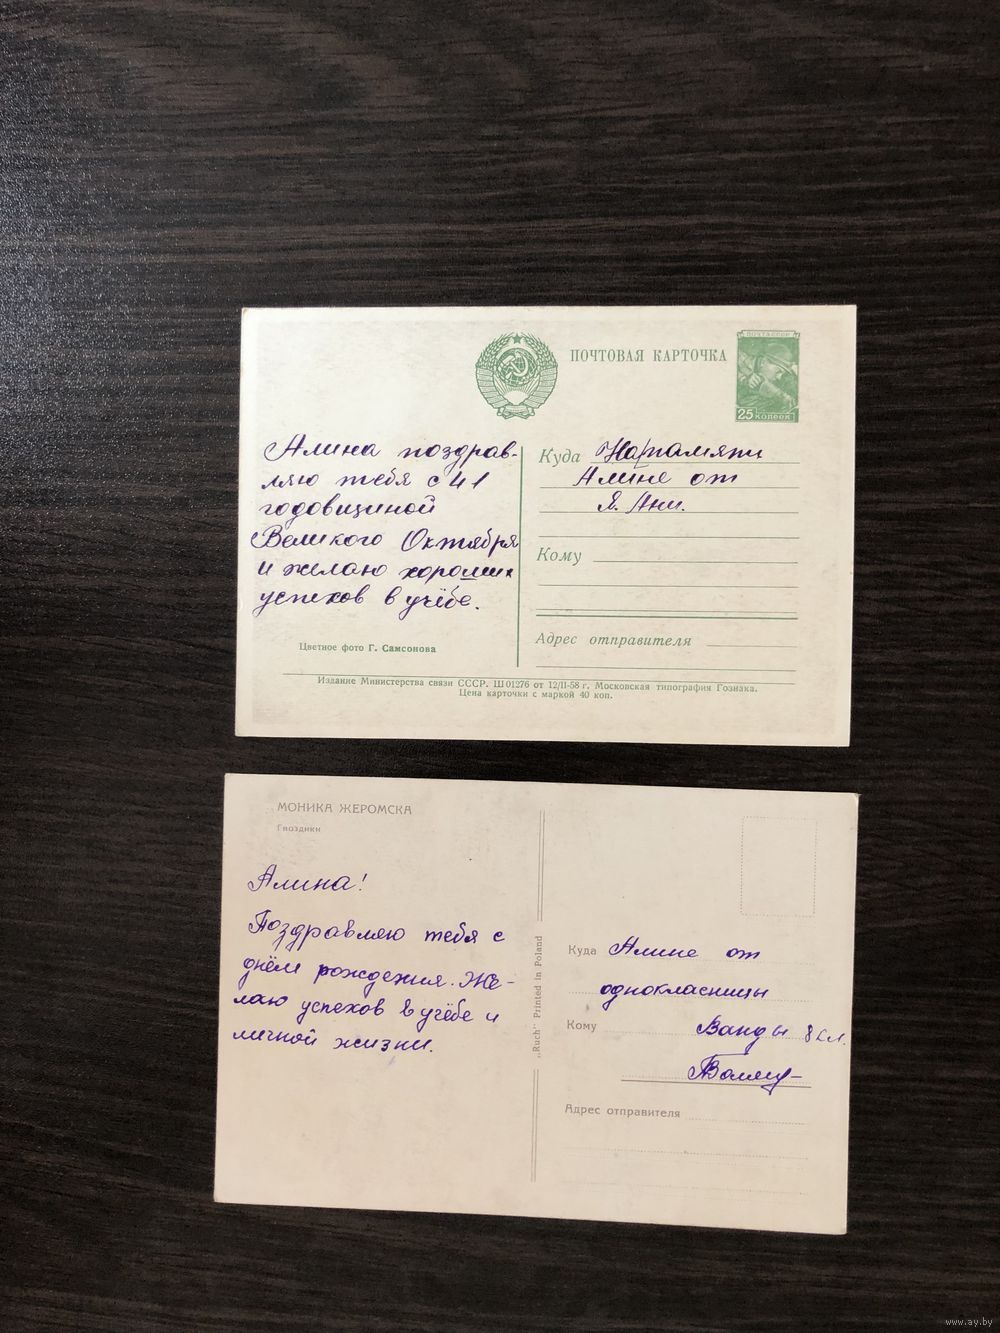 ПОЧТОВАЯ КАРТОЧКА
ПОЧТА СССР
25 КОПЕЕК
Алина поздрав-
ляю тебя с 41
годовщиной
Великого Октября
и желаю хороших
успехов в учёбе.
Цветное фото Г. Самсонова
Куда На память
Алине от
Я. Ани.
Кому
Адрес отправителя
Издание Министерства связи СССР. Ш 01276 от 12/II-58 г. Московская типография Гознака.
Цена карточки с маркой 40 коп.
МОНИКА ЖЕРОМСКА
Гвоздики
Алина!
Поздравляю тебя с
днём рождения. Же-
лаю успехов в учёбе и
личной жизни.
„Ruch" Printed in Poland
Куда Алине от
однокласницы
Кому Ванды 8 кл.
Адрес отправителя
www.ay.by